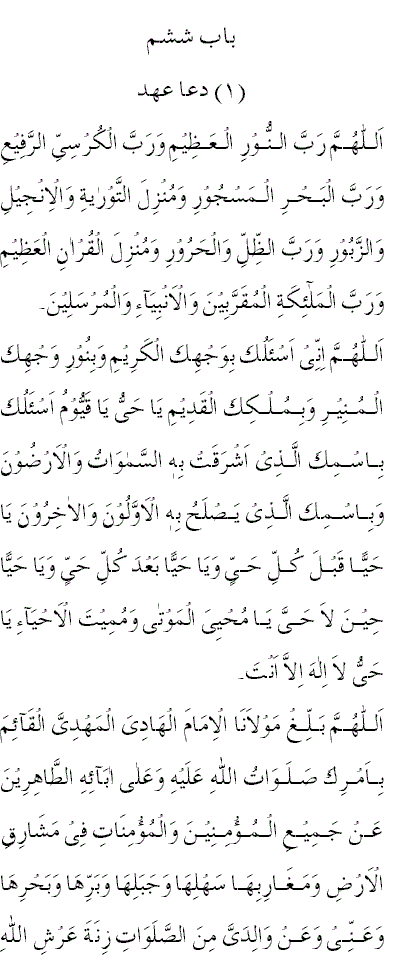 باب ششم
(۱) دعا عهد
اَللّٰهُمَّ رَبَّ النُّوْرِ الْعَظِيْمِ وَرَبَّ الْكُرْسِيِّ الرَّفِيْعِ
وَرَبَّ الْبَحْرِ الْمَسْجُوْرِ وَمُنْزِلَ التَّوْرٰيةِ وَالْاِنْجِيْلِ
وَالزَّبُوْرِ وَرَبَّ الظِّلِّ وَالْحَرُوْرِ وَمُنْزِلَ الْقُرْاٰنِ الْعَظِيْمِ
وَرَبَّ الْمَلٰٓئِكَةِ الْمُقَرَّبِيْنَ وَالْاَنْبِيَآءِ وَالْمُرْسَلِيْنَ۔
اَللّٰهُمَّ اِنِّىْ اَسْئَلُكَ بِوَجْهِكَ الْكَرِيْمِ وَبِنُوْرِ وَجْهِكَ
الْمُنِيْرِ وَبِمُلْكِكَ الْقَدِيْمِ يَا حَىُّ يَا قَيُّوْمُ اَسْئَلُكَ
بِاسْمِكَ الَّذِىْ اَشْرَقَتْ بِهِ السَّمٰوَاتُ وَالْاَرْضُوْنَ
وَبِاسْمِكَ الَّذِىْ يَصْلَحُ بِهِ الْاَوَّلُوْنَ وَالْاٰخِرُوْنَ يَا
حَيًّا قَبْلَ كُلِّ حَىٍّ وَيَا حَيًّا بَعْدَ كُلِّ حَىٍّ وَيَا حَيًّا
حِيْنَ لاَ حَىَّ يَا مُحْيِىَ الْمَوْتٰى وَمُمِيْتَ الْاَحْيَآءِ يَا
حَىُّ لاَ اِلٰهَ اِلاَّ اَنْتَ۔
اَللّٰهُمَّ بَلِّغْ مَوْلاَنَا الْاِمَامَ الْهَادِىَ الْمَهْدِىَّ الْقَآئِمَ
بِاَمْرِكَ صَلَوَاتُ اللّٰهِ عَلَيْهِ وَعَلٰى اٰبَآئِهِ الطَّاهِرِيْنَ
عَنْ جَمِيْعِ الْمُؤْمِنِيْنَ وَالْمُؤْمِنَاتِ فِىْ مَشَارِقِ
الْاَرْضِ وَمَغَارِبِهَا سَهْلِهَا وَجَبَلِهَا وَبَرِّهَا وَبَحْرِهَا
وَعَنِّىْ وَعَنْ وَالِدَىَّ مِنَ الصَّلَوَاتِ زِنَةَ عَرْشِ اللّٰهِ